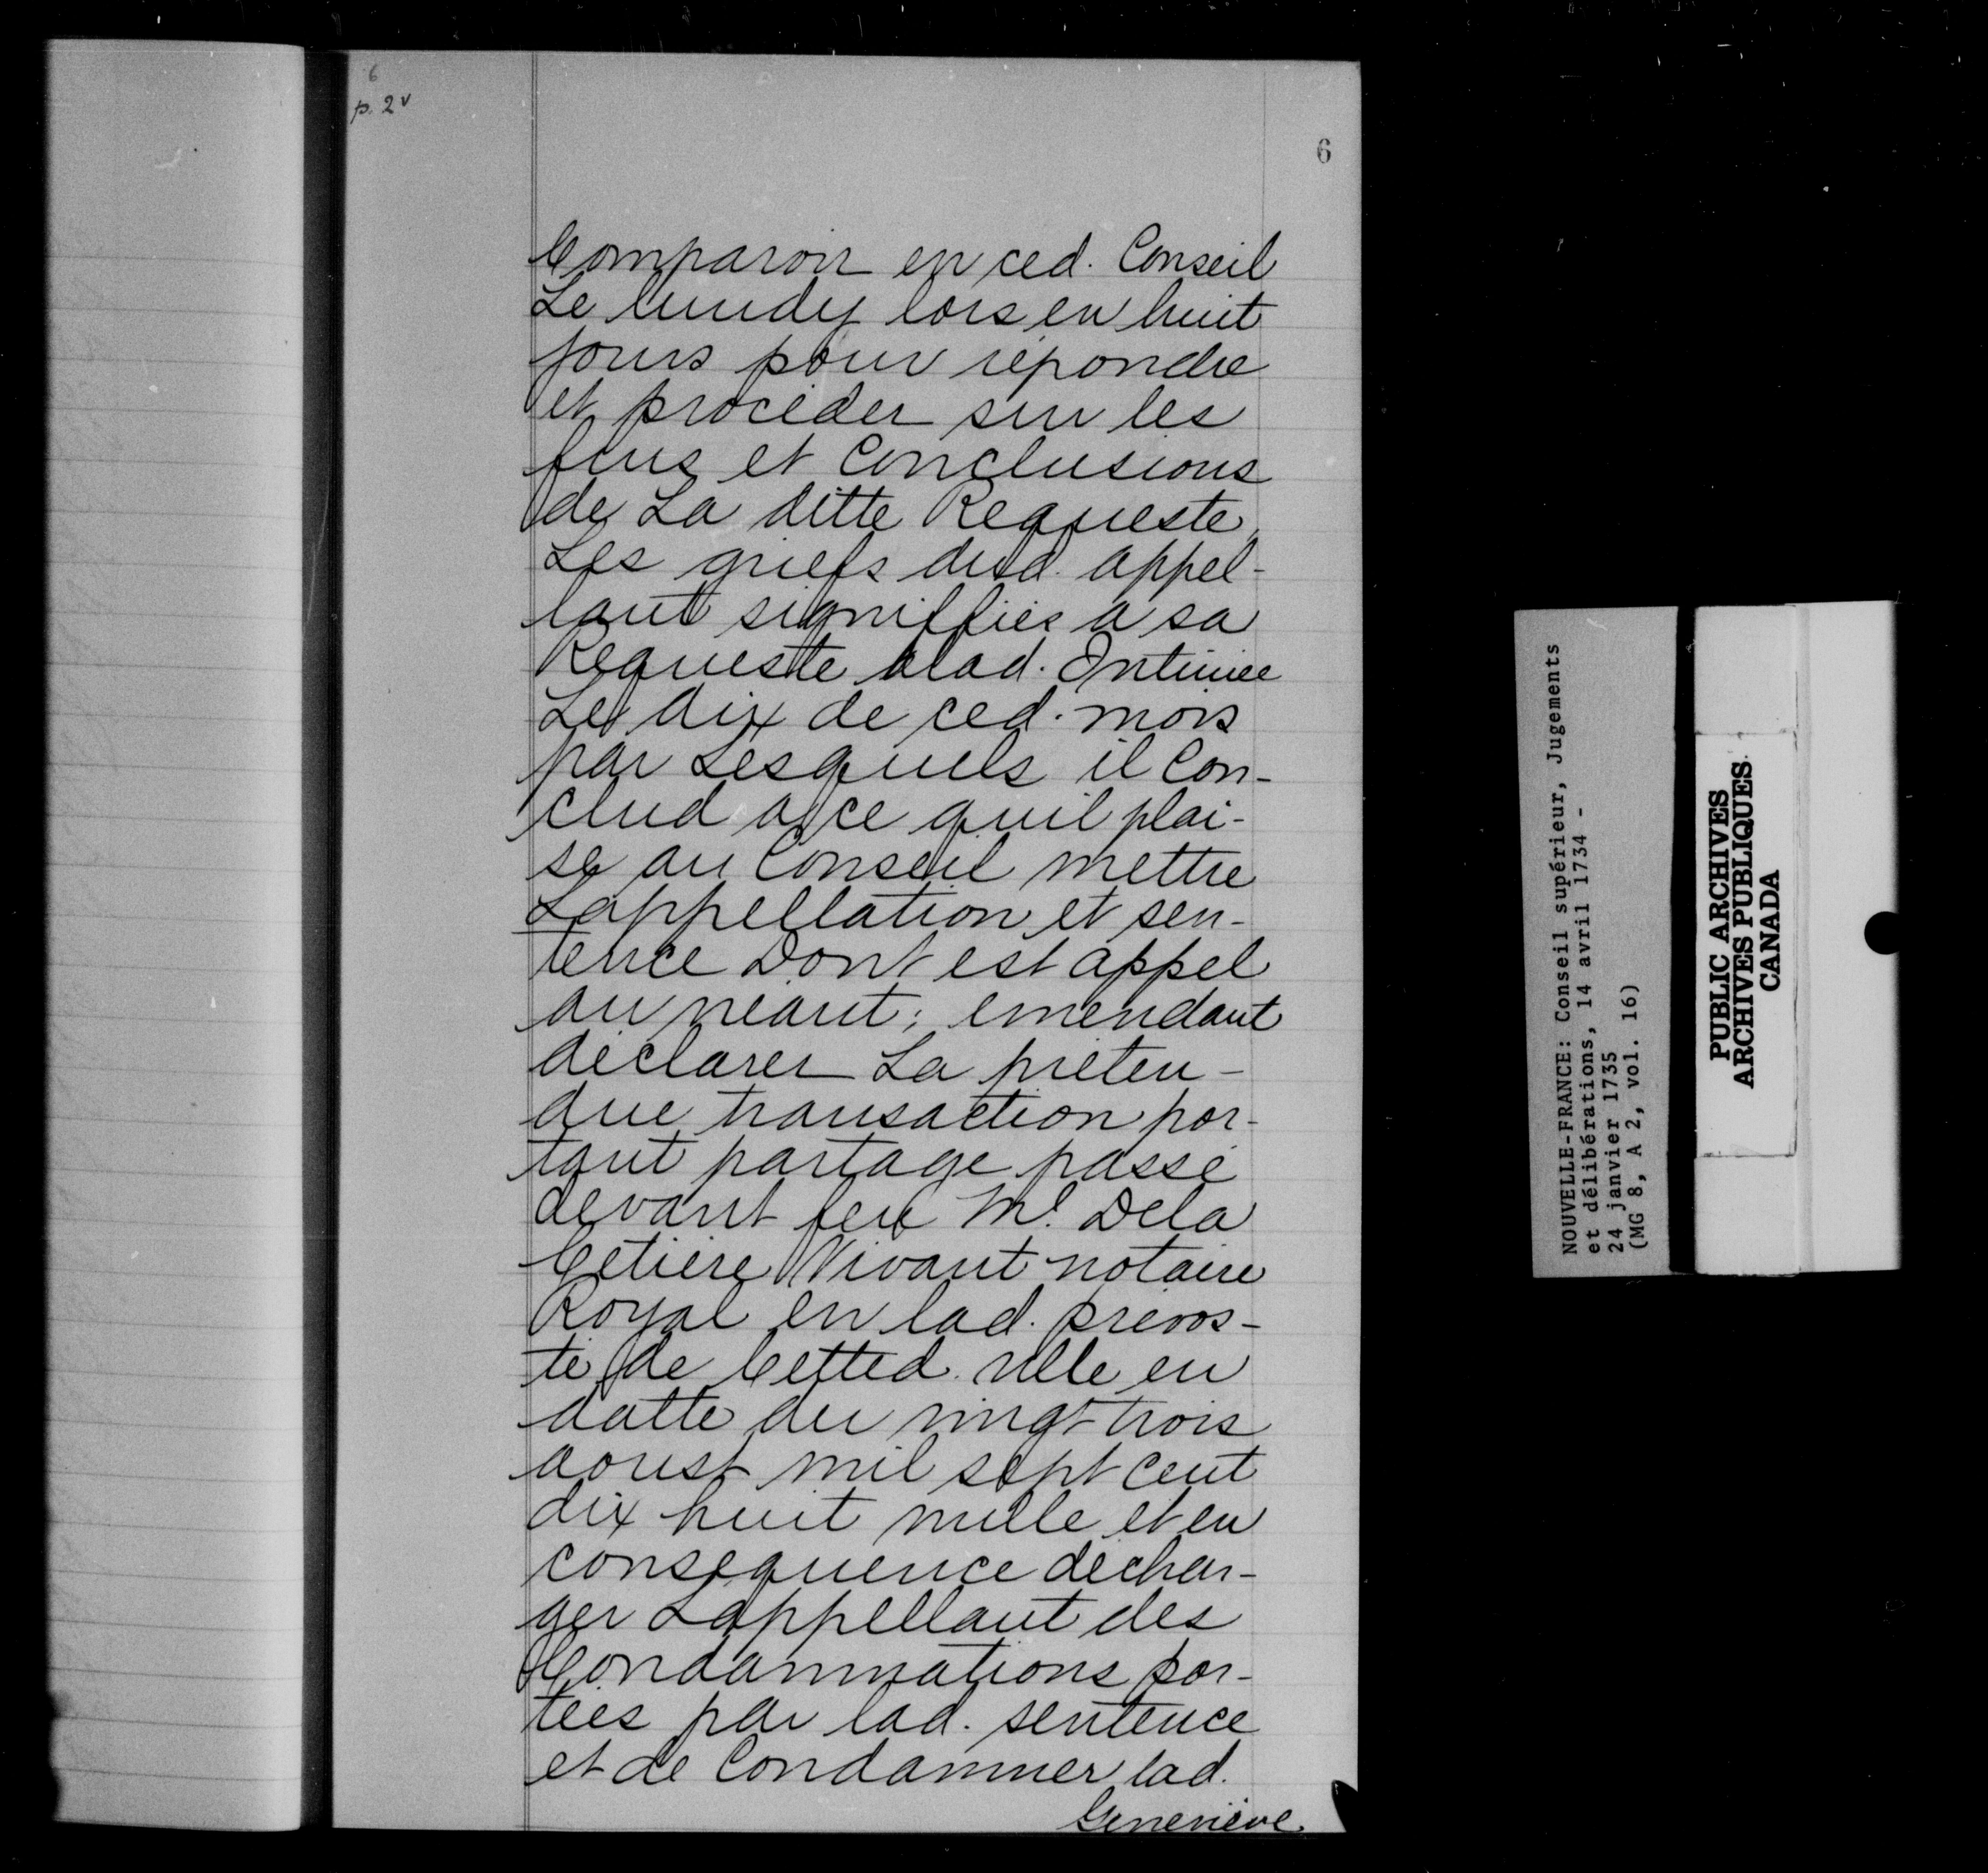 6
p. 2v
6
Comparoir en ced. Conseil
Le lundy lors en huit
jours pour répondre
et procéder sur les
fins et Conclusions
de La ditte Requeste,
Les griefs dud. appel-
lant signiffiés a sa
Requeste alad. Intimée
Le dix de ced. mois
par Lesquels il Con-
clud a ce quil plai-
se au Conseil mettre
Lappellation et sen-
tence Dont est appel
au néant; émendant
déclarer La préten-
due transaction por-
tant partage passé
devant feu Me. Dela
Cetiere Vivant notaire
Royal en lad. prévos-
té de Cetted. ville en
datte du vingt trois
aoust mil sept cent
dix huit nulle et en
conséquence déchar-
ger Lappellant des
Condamnations por-
tées par lad. sentence
et de Condamner lad.
Geneviève.
NOUVELLE-FRANCE: Conseil supérieur, Jugements
et délibérations, 14 avril 1734 -
24 janvier 1735
(MG 8, A 2, vol. 16)
PUBLIC ARCHIVES
ARCHIVES PUBLIQUES
CANADA